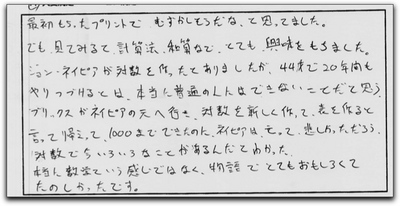 最初もらったプリントで むずかしそうだな、と思ってました。
でも、見てみると計算法、和算など、とても、興味をもちました。
ジョン・ネイピアが対数を作ったとありましたが、44才で20年間も
やりつづけるとは、本当に普通の人にはできないことだと思う。
ブリックスがネイピアの元へ行き、対数を新しく作って、表を作ると
言って帰えって、1000まで できたのに、ネイピアは、 って、悲しかっただろう。
対数でもいろいろなことがあるんだでわかった。
本当に数学という感じではなく、物語で とてもおもしろくて
たのしかったです。